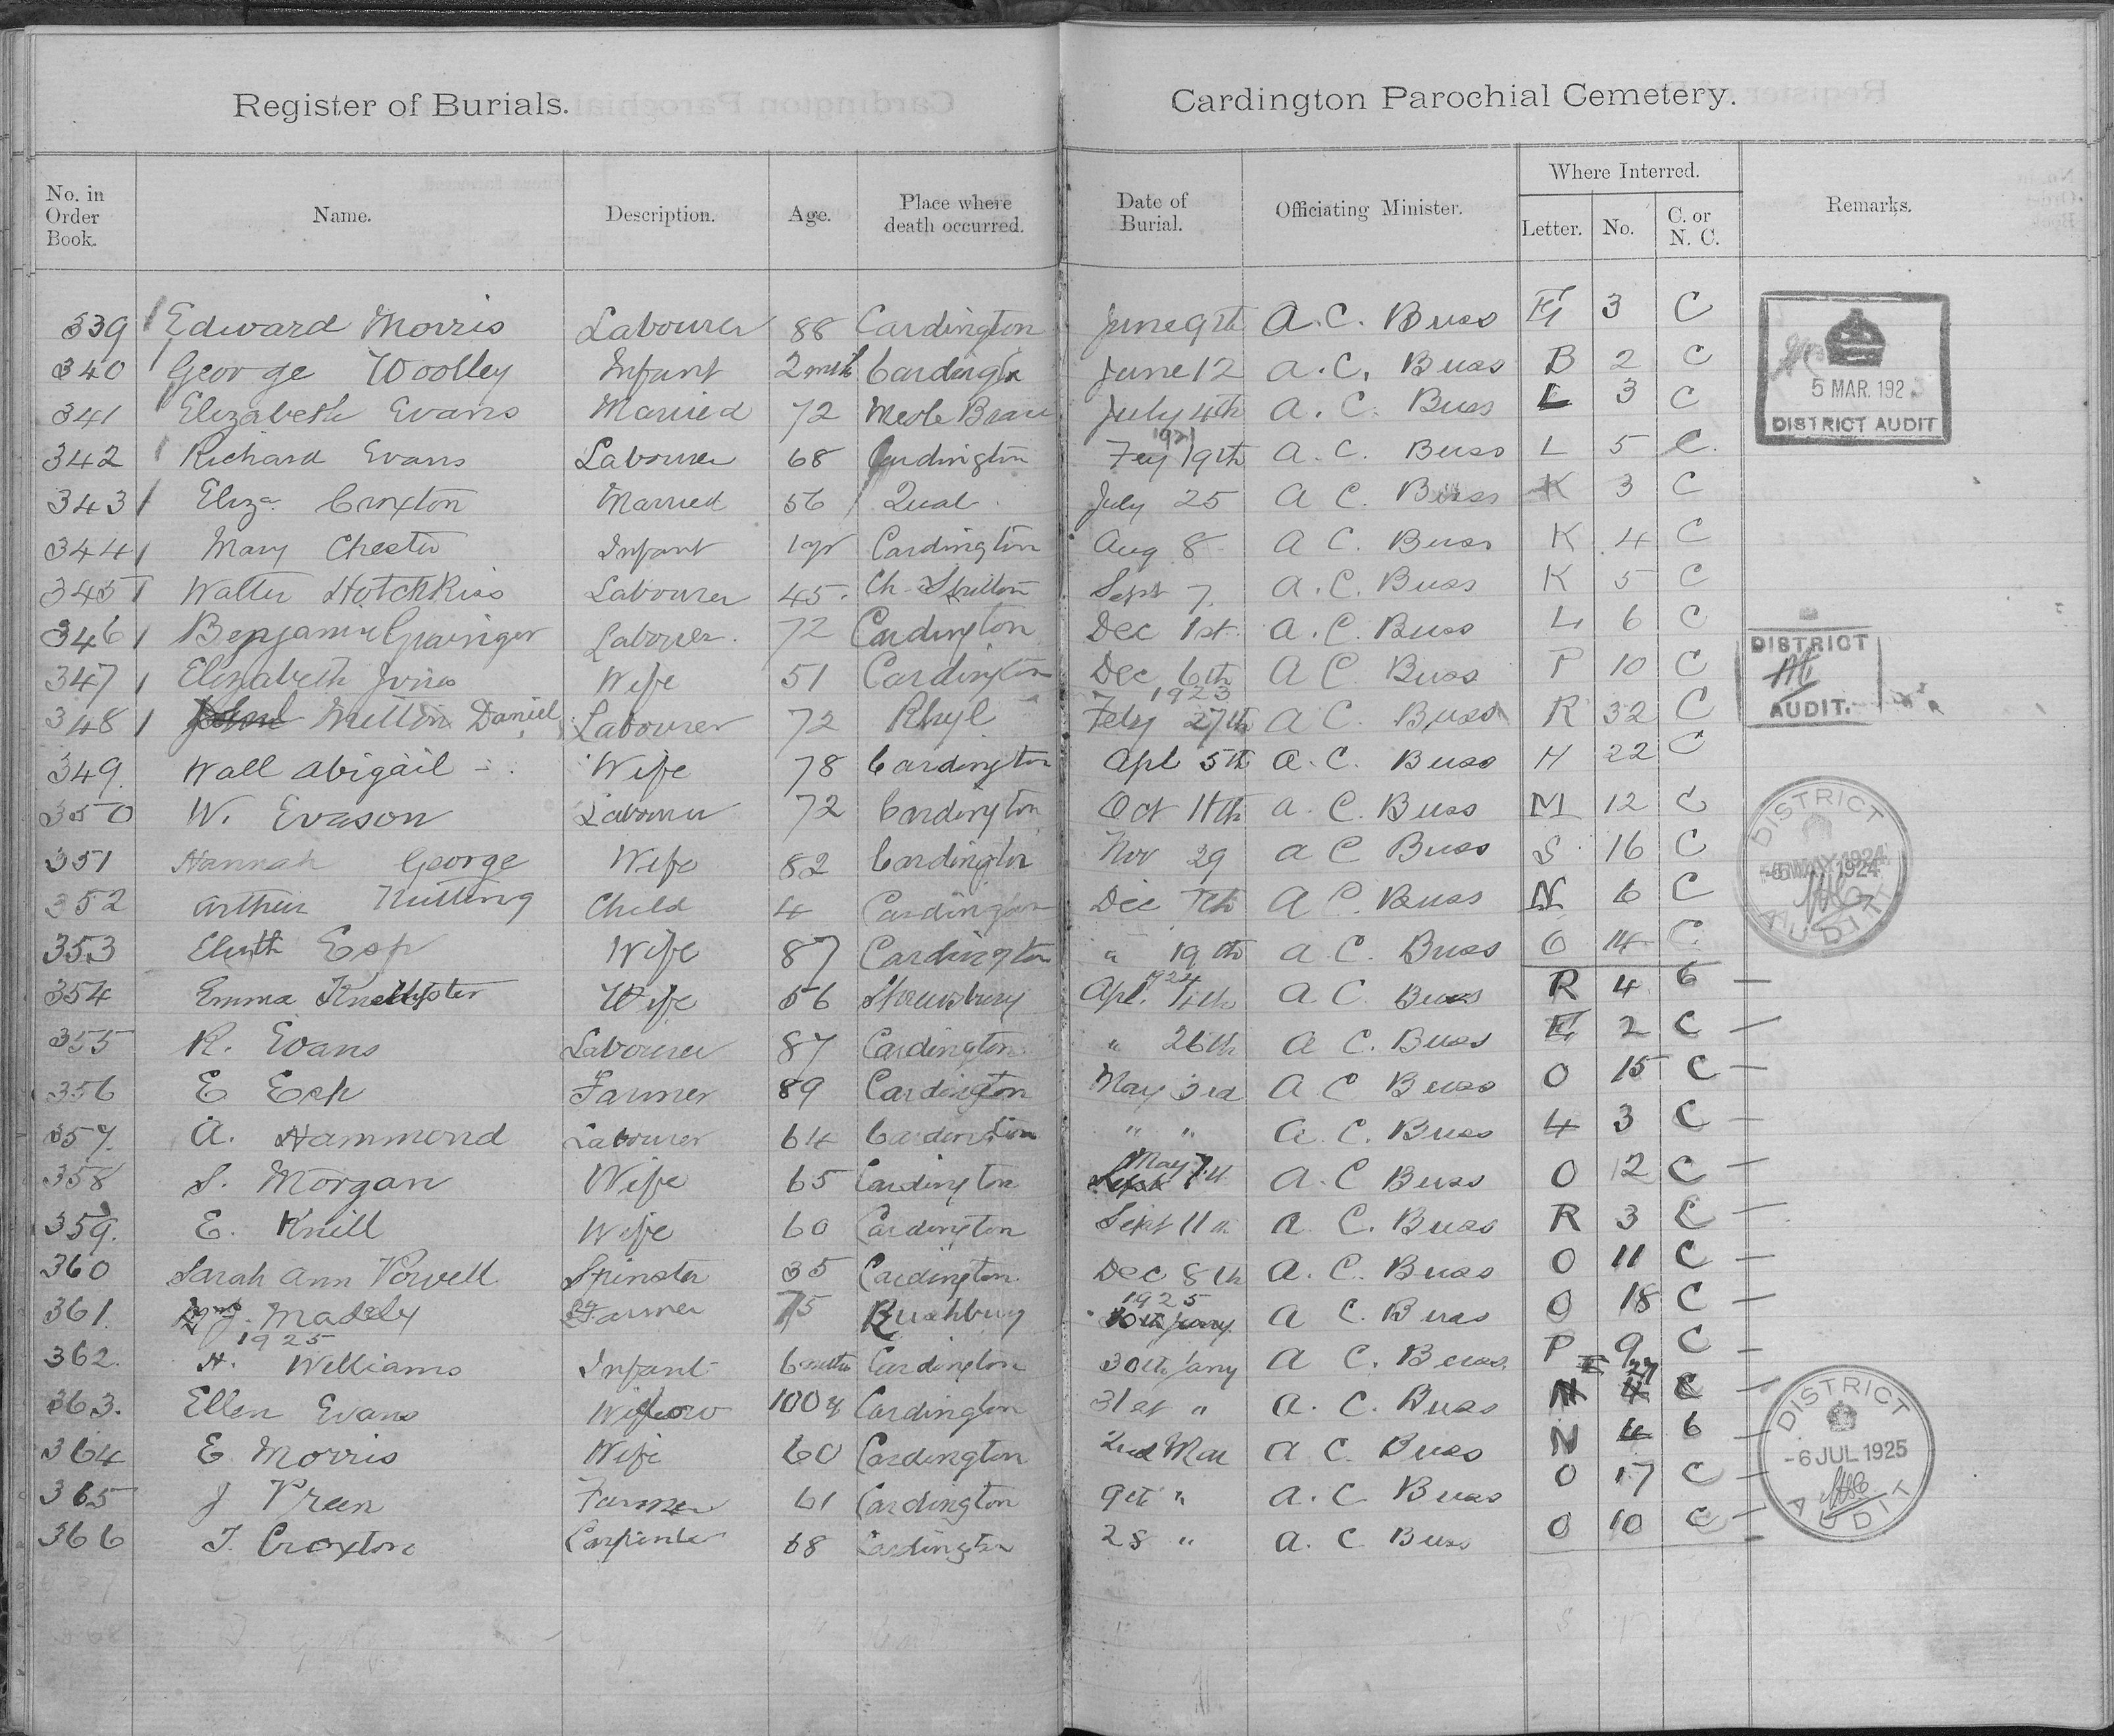 Register of Burials.
Cardington Parochial Cemetery.
No. in Order Book. Name. Description. Age. Place where death occurred. Date of Burial. Officiating Minister. Where Interred. Letter. No. C. or N. C. Remarks.
339 Edward Morris Labourer 88 Cardington June 9th A. C. Buss E 3 C
340 George Woolley Infant 2 mth Cardington June 12 A. C. Buss B 2 C
341 Elizabeth Evans Married 72 Meole Brace July 4th A. C. Buss L 3 C
1921
342 Richard Evans Labourer 68 Cardington 19th A. C. Buss L 5 C.
343 Eliza Croxton Married 56 July 25 A C. Buss K 3 C
344 Mary Chester Infant 1 yr Cardington Aug 8 A C. Buss K 4 C
345 Walter Hotchkiss Labourer 45. Ch. Stretton Sept 7. A. C. Buss K 5 C
346 Benjamin Grainger Labourer. 72 Cardington Dec 1st. A. C. Buss L 6 C
347 Elizabeth Jones Wife 51 Cardington Dec 6th A C Buss P 10 C
1923
348 Daniel Labourer 72 Rhyl Feby 27th A C. Buss R 32 C
349. Wall Abigail Wife 78 Cardington Apl 5th A. C. Buss H 22 C
350 W. Evason Labourer 72 Cardington Oct 11th A. C. Buss M 12 C
351 Hannah George Wife 82 Cardington Nov 29 A C Buss S 16 C
352 Arthur Nutting Child 4 Cardington Dec 7th A C. Buss N 6 C
353 Esp Wife 87 Cardington " 19th A. C. Buss O 14 C
1924
354 Emma Wife 56 Shrewsbury Apl. A C. Buss R 4 C —
355 R. Evans Labourer 87 Cardington " 26th A C. Buss E 2 C —
356 E Esp Farmer 89 Cardington May 3rd A C Buss O 15 C —
357. A. Hammond Labourer 64 Cardington " " A. C. Buss 3 C —
358 S. Morgan Wife 65 Cardington May 7th A. C Buss O 12 C —
359. E. Knill Wife 60 Cardington Sept 11th A C. Buss R 3 C —
360 Sarah Ann Powell Spinster 35 Cardington Dec 8th A. C. Buss O 11 C —
1925
361. Madely Farmer 75 Rushbury 10th Jany A C. Buss O 18 C —
1925
362. H. Williams Infant 6 mths Cardington 30th Jany A C. Buss P 9 C —
363. Ellen Evans Widow 100 y Cardington 31st " A. C. Buss E 27 C —
364 E Morris Wife 60 Cardington 2nd Mar A C Buss N 4 C —
365 J Preen Farmer 61 Cardington 9th " A. C Buss O 17 C —
366 T. Croxton Carpenter 68 Cardington 28 " A. C Buss O 10 C —
5 MAR. 192
DISTRICT AUDIT
DISTRICT
AUDIT.
DISTRICT
MAY 1924
AUDIT
DISTRICT
-6 JUL 1925
AUDIT